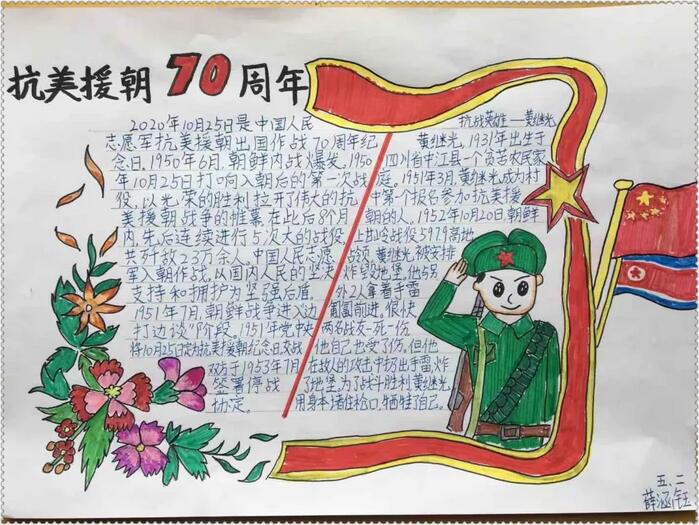 抗美援朝70周年
2020年10月25日是中国人民
志愿军抗美援朝出国作战70周年纪
念日。1950年6月朝鲜内战爆发。1950
年10月25日打响入朝后的第一次战
役。以光荣的胜利拉开了伟大的抗
美援朝战争的帷幕在此后8个月
内,先后连续进行5次大的战役,
共歼敌23万余人。中国人民志愿
军入朝作战,以国内人民的坚决
支持和拥护为坚强后盾。
1951年7月,朝鲜战争进入边
打边谈"阶段。1951年党中央
将10月25日定为抗美援朝纪念日。交战
双方于1953年7月
签署停战
协定。
抗战英雄—黄继光
黄继光,1931年出生于
四川省中江县一个贫苦农民家
庭。1951年3月,黄继光成为村
中第一个报名参加抗美援
朝的人。1952年10月20日,朝鲜
上甘岭战役5979高地
战斗,黄继光被安排
炸毁地堡。他与另
外2人拿着手雷
匍匐前进。很快
两名战友一死一伤
他自己也受了伤。但他
在敌人的攻击中扔出手雷,炸
了地堡。为了战斗胜利,黄继光
用身体堵住枪口。牺牲了自己。
五、二
薛涵钰